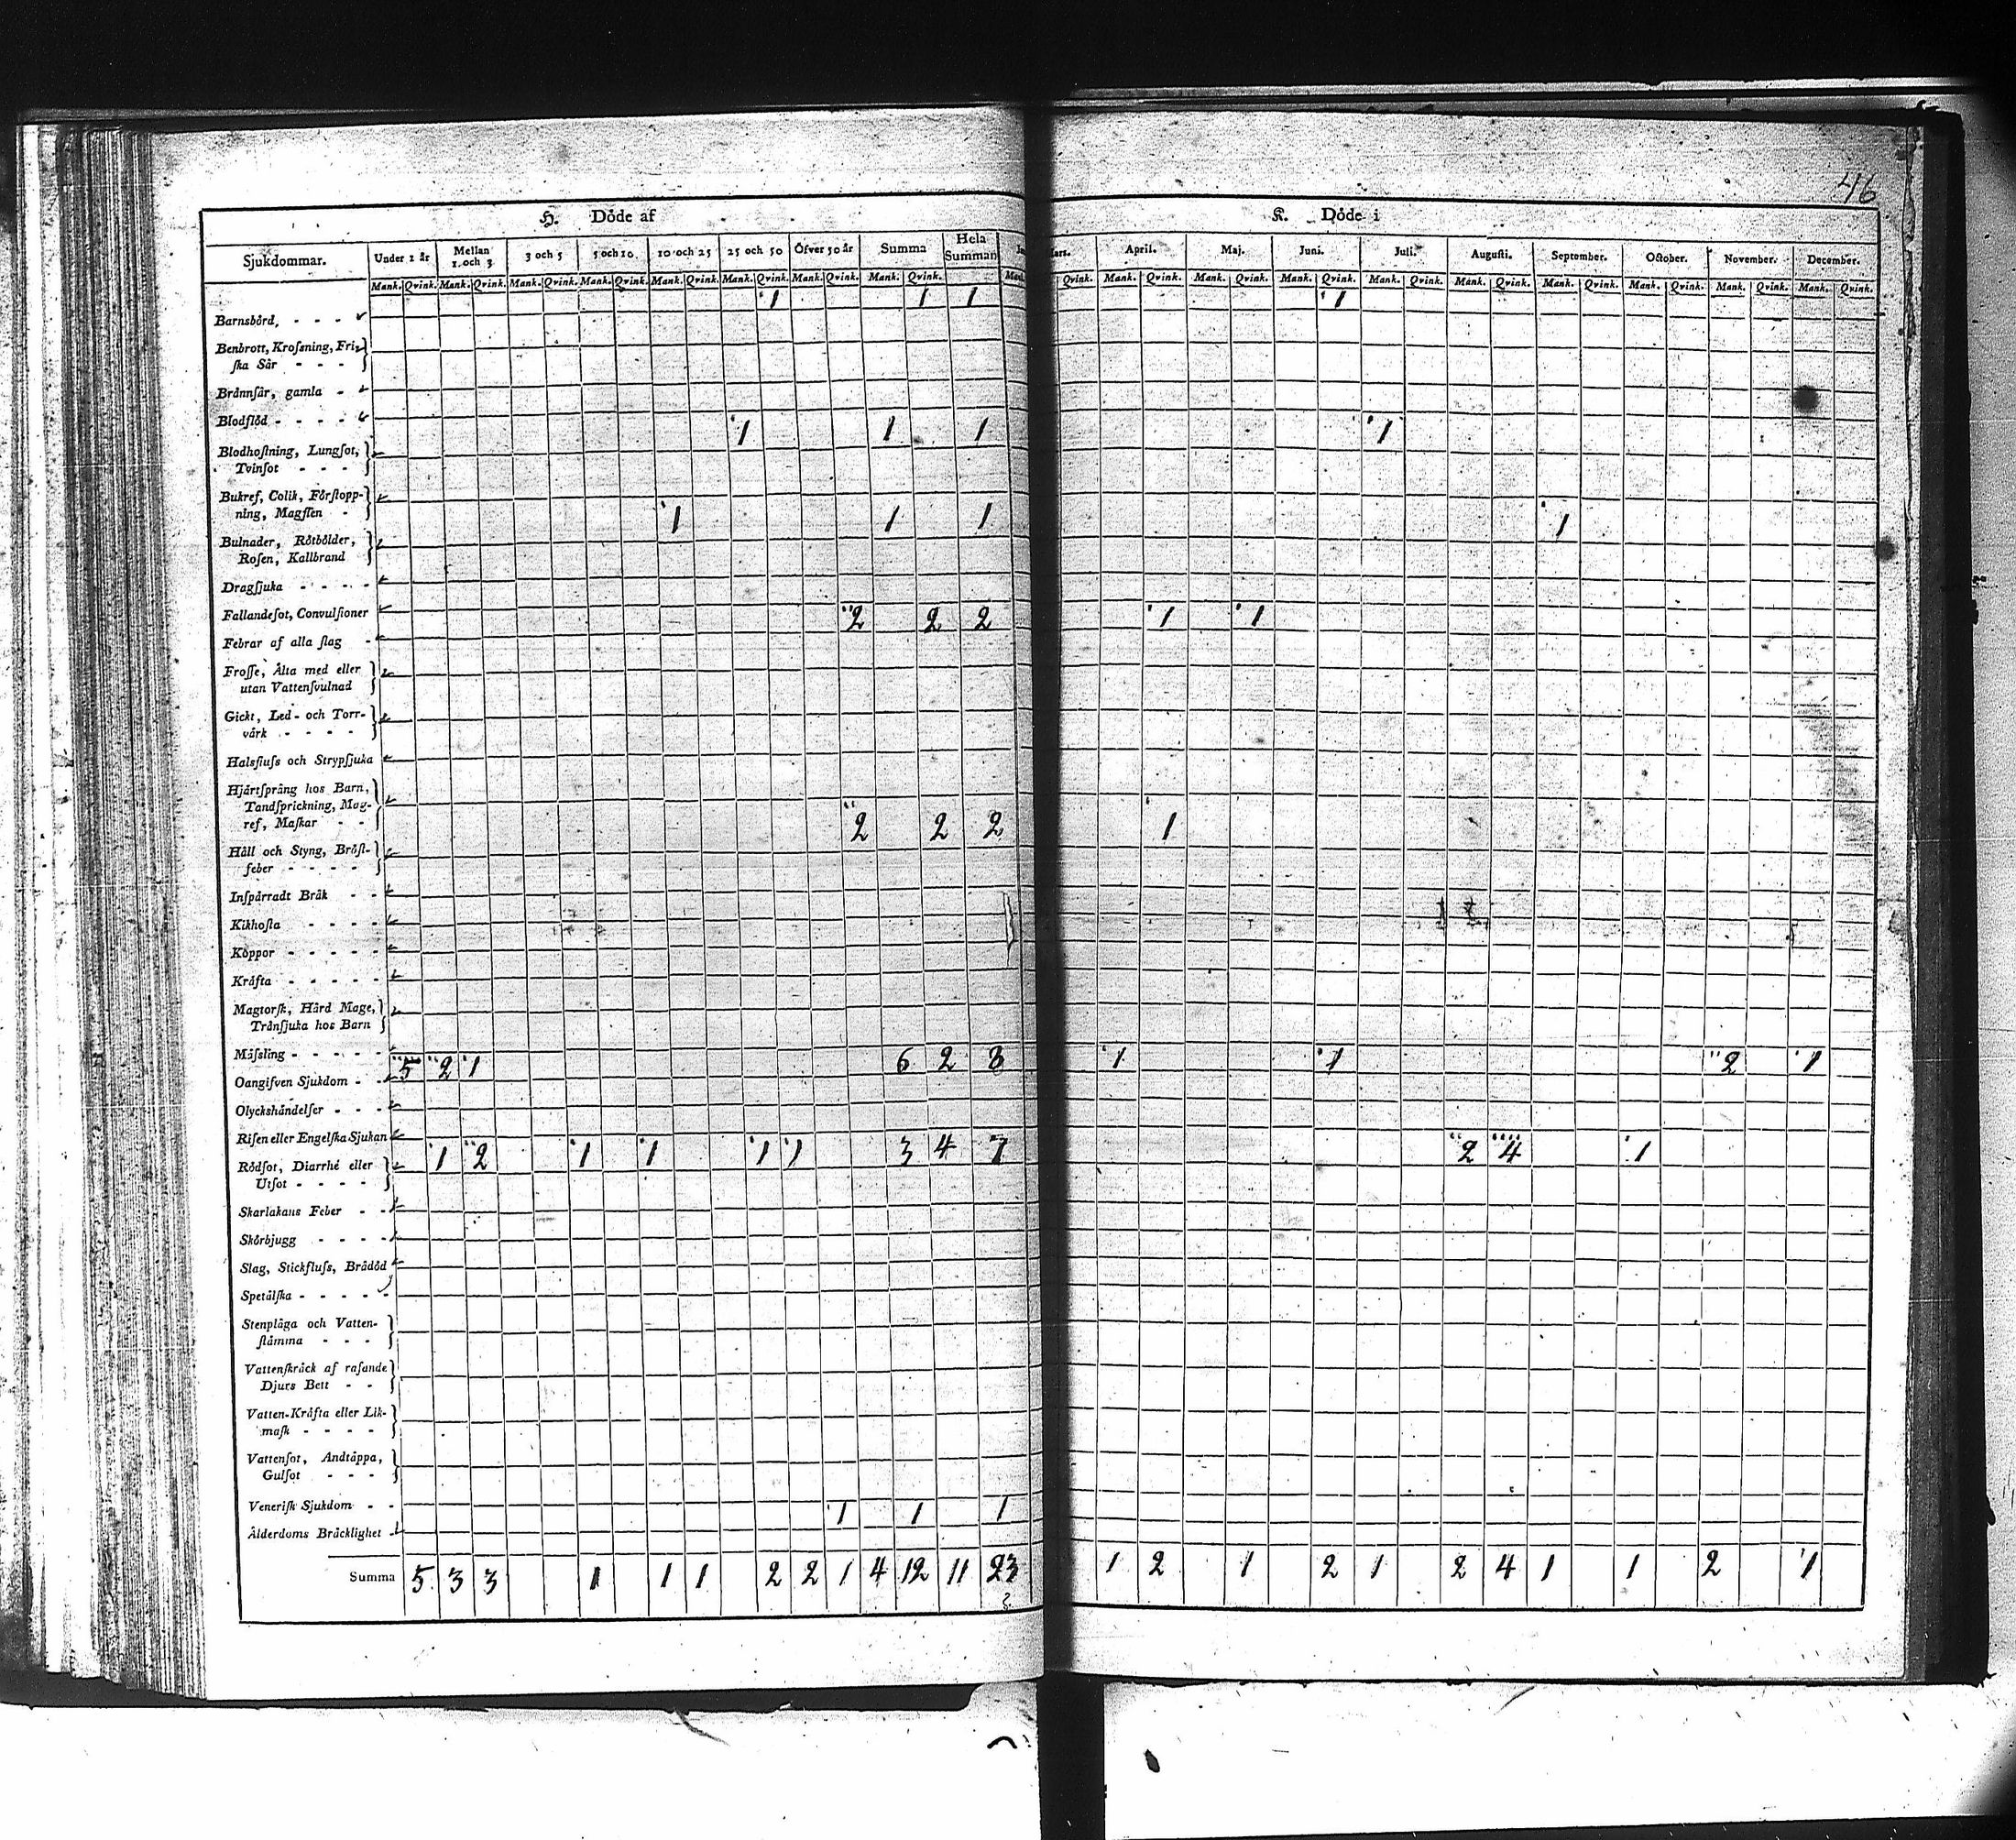 46
H. Döde af K. Döde i
Sjukdommar. Under 1 år Mellan 1. och 3 3 och 5 5 och 10 10 och 25 25 och 50 Öfver 50 år Summa Hela Summan April. Maj. Juni. Juli. Augusti. September. October. November. December.
Mank. Qvink. Mank. Qvink. Mank. Qvink. Mank. Qvink. Mank. Qvink. Mank. Qvink. Mank. Qvink. Mank. Qvink. Qvink. Mank. Qvink. Mank. Qvink. Mank. Qvink. Mank. Qvink. Mank. Qvink. Mank. Qvink. Mank. Qvink. Mank. Qvink. Mank. Qvink.
1 1 1 1
Barnsbörd, - - -
Benbrott, Krofsning, Fri-
ſka Sår - - -
Brännſår, gamla -
Blodflöd - - - -
1 1 1 1
Blodhoſtning, Lungſot,
Tvinſot - - -
Bukref, Colik, Förſtopp-
ning, Magſten -
1 1 1 1
Bulnader, Rötbölder,
Roſen, Kallbrand
Dragſjuka - - - -
Fallandeſot, Convulſioner
2 2 2 1 1
Febrar af alla ſlag -
Froſſe, Älta med eller
utan Vattenſvulnad
Gickt, Led- och Torr-
värk - - - -
Halsfluſs och Strypſjuka
Hjärtſprång hos Barn,
Tandſprickning, Mag-
ref, Maſkar - -
2 2 2 1
Håll och Styng, Bröſt-
feber - - - -
Inſpärradt Bråk - -
Kikhoſta - - - -
Koppor - - - - -
Kräfta - - - - -
Magtorſk, Hård Mage,
Tränſjuka hos Barn
Mäſsling - - - - -
5 2 1 6 2 8 1 1 2 1
Oangifven Sjukdom - -
Olyckshändelſer - - -
Riſen eller Engelſka Sjukan
1 2 1 1 1 1 3 4 7 2 4 1
Rödſot, Diarrhé eller
Utſot - - - -
Skarlakans Feber - -
Skörbjugg - - - -
Slag, Stickfluſs, Brådöd
Spetälſka - - - - -
Stenplåga och Vatten-
ſtämma - - -
Vattenſkräck af raſande
Djurs Bett - -
Vatten-Kräfta eller Lik-
maſk - - - -
Vattenſot, Andtäppa,
Gulſot - - -
Veneriſk Sjukdom - -
1 1 1
Ålderdoms Bräcklighet -
Summa 5 3 3 1 1 1 2 2 1 4 12 11 23 1 2 1 2 1 2 4 1 1 2 1